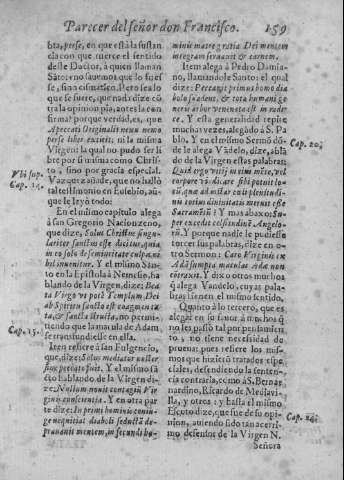 Parecer del señor don Francisco. 159
bta, perse, en que està la sustan
cia con que merece el sentido
deste Dotor, à quien llaman
Sãto: no sauemos que lo fuesse
, sean cismatico. Pero sea lo
que se fuere, que nada dize cõ
tra la opinion pia, antes la con
firma: porque verdad es, que
A peccati Originalis nexu nemo
per se liber extitit, ni la misma
Virgen: la qual no pudo ser li
bre por si misma como Chris-
to, sino por gracia especial.
Vazquez añade, que no hallò
tal testimonio en Eusebio, aũ
que le leyò todo:
En el mismo capitulo alega
à san Gregorio Nacionzeno,
que dize, Solus Christus singu-
lariter sanctus esse dicitur, quia
in eo solo desemiritate culpa, ni
bil inuenitur. Y el mismo San
to en la Epistola à Nemesio, ha
blando de la Virgen, dize: Bea
ta Virgo vt potè Templum Dei
a Spiritu sancto est coagmenta
ta, & sancta structa, no permi-
tiendo que la macula de Adam
se transfundiesse en ella.
Iten refiere à san Fulgencio,
que, dize: Solus mediator noster
fine peccato fuit. Y el mismo sã
cto hablando de la Virgen di-
ze: Nullum nouit contagiũ Vir
ginis conscientia. Y en otra par
te dize: In primi hominis coniu-
ge nequitia diaboli seductā de-
prauauit mentem, in secundi ho-
minis matre gratia Dei mentem
integram seruauit & carnem.
Item alega à Pedro Damia-
no, llamandole Santo: el qual
dize: Peccauit primus homo dia
bolo suadens, & tota humani ge
neris arbor venenata est in radi-
ce. Y esta generalidad repite
muchas vezes, alegãdo à S. Pa
blo, Y en el mismo Sermõ dõ-
de le alega Vãdelo, dize, ablã
do de la Virgen estas palabras:
Quid ergo vitij in eius mẽte, vel
corpore vẽdicare sibi potuit lo-
cũ, quæ ad instar cœli plenitudi
nis totius diuinitatis meruit esse
Sacrariũ? Y mas abaxo: Su-
per excedit celsitudinẽ Angelo-
rũ. Y porque nadie le pudiesse
torcer sus palabras, dize en o-
tro Sermon: Caro Virginis ex
Adã sumpta maculas Adæ non
contraxit. Y dixo otros muchos
q̃ alega Vandelo, cuyas pala-
bras tienen el mismo sentido.
Quanto à lo tercero, que es
alegar en su fauor à muchos q̃
no les passò tal por pensamien
to, no tiene necesidad de
prueua: pues refiere los mis-
mos que hizierõ tratados espe-
ciales, defendiendo la senten-
cia contraria, como à S. Bernar
nardino, Ricardo de Mediavi-
lla, y otros: y hasta el mismo
Escoto dize, que fue de su opi-
nion, auiendo sido tan acerri-
mo defensor de la Virgen N.
Señora
Vbi sup.
Cap. 14.
Cap. 15.
Cap. 20.
Cap. 24.